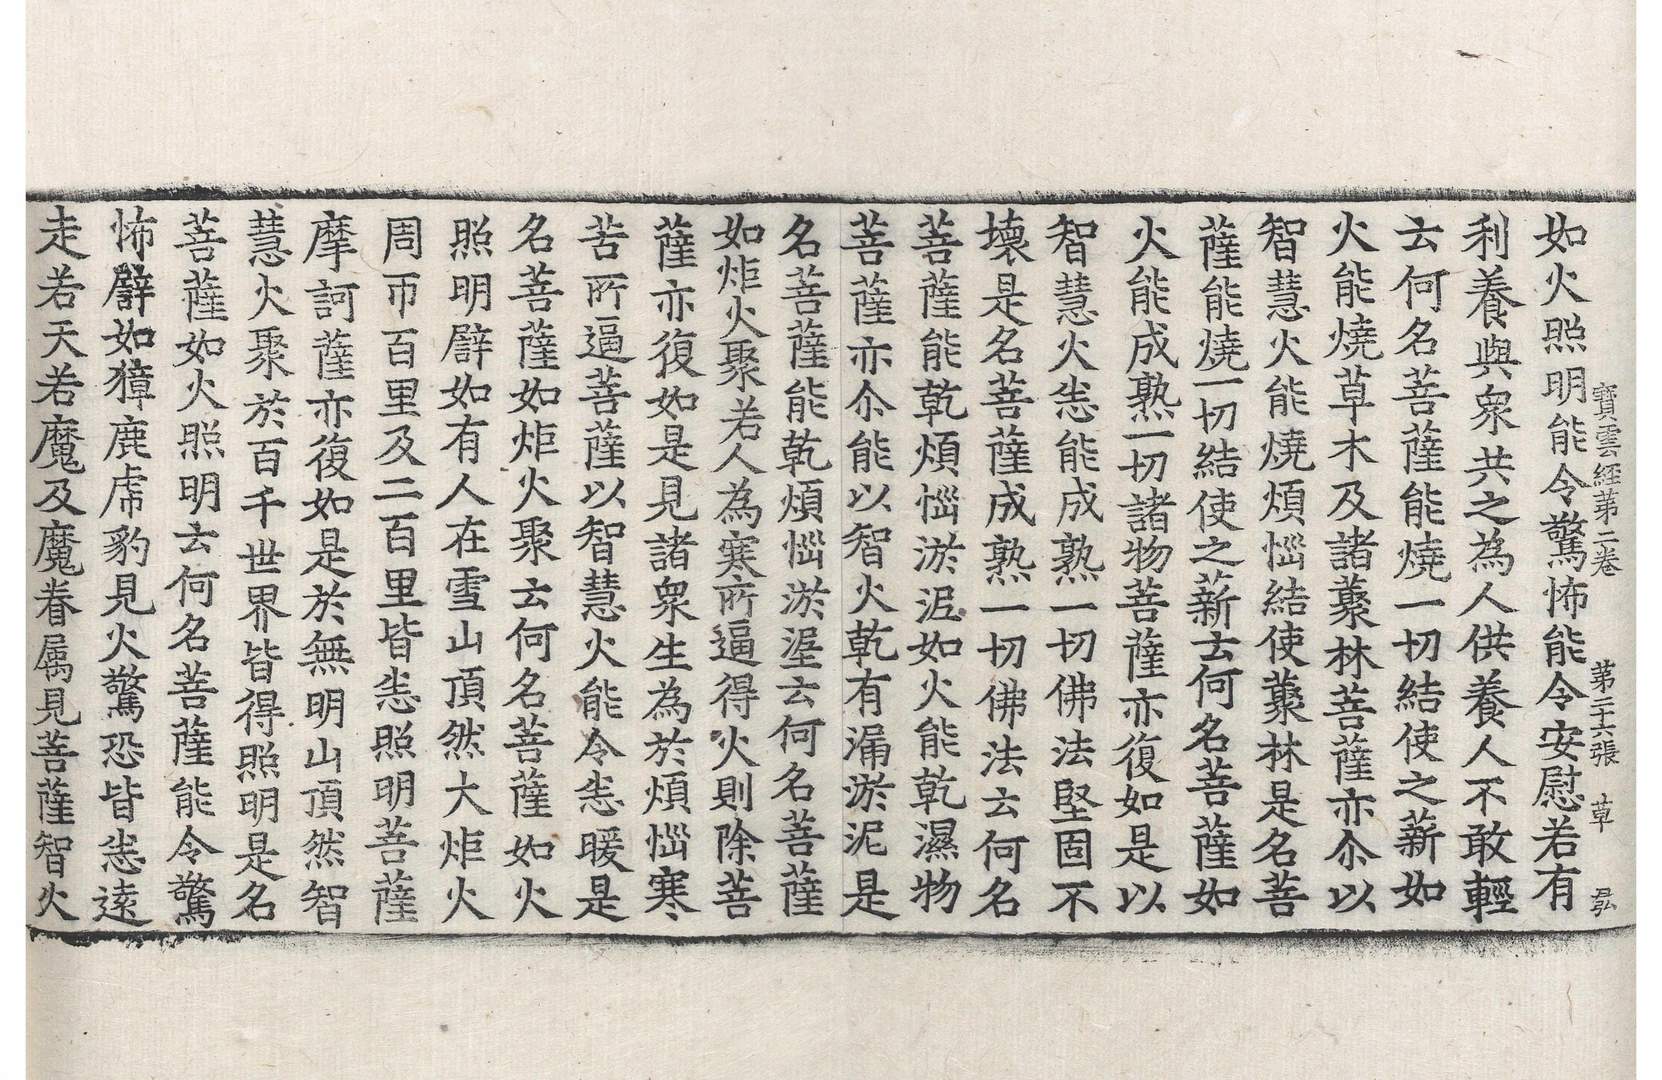 寶雲經苐二卷　苐二十六張　草　弘
如火照明能令驚怖能令安慰若有
利養與衆共之為人供養人不敢輕
云何名菩薩能燒一切結使之薪如
火能燒草木及諸藂林菩薩亦尒以
智慧火能燒煩惱結使藂林是名菩
薩能燒一切結使之薪云何名菩薩如
火能成熟一切諸物菩薩亦復如是以
智慧火悉能成熟一切佛法堅固不
壞是名菩薩成熟一切佛法云何名
菩薩能乾煩惱淤泥如火能乾濕物
菩薩亦尒能以智火乾有漏淤泥是
名菩薩能乾煩惱淤埿云何名菩薩
如炬火聚若人為寒所逼得火則除菩
薩亦復如是見諸衆生為於煩惱寒
苦所逼菩薩以智慧火能令悉暖是
名菩薩如炬火聚云何名菩薩如火
照明譬如有人在雪山頂然大炬火
周帀百里及二百里皆悉照明菩薩
摩訶薩亦復如是於無明山頂然智
慧火聚於百千世界皆得照明是名
菩薩如火照明云何名菩薩能令驚
怖譬如獐鹿虎豹見火驚恐皆悉遠
走若天若魔及魔眷属見菩薩智火